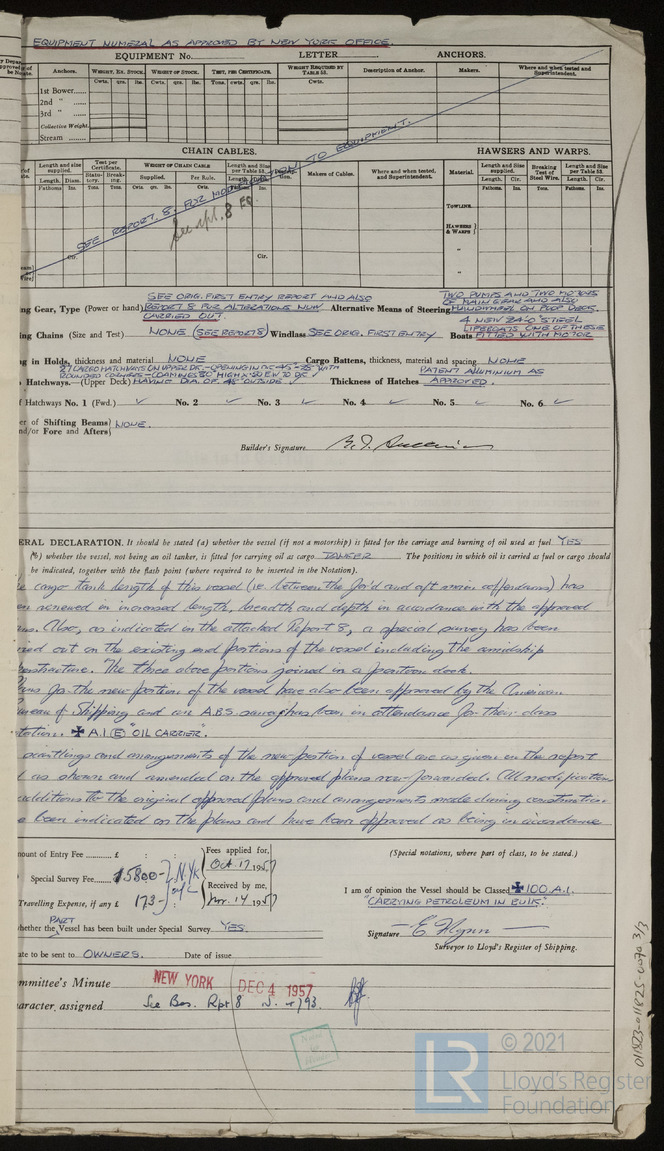 EQUIPMENT NUMERAL AS APPROVED BY NEW YORK OFFICE.
EQUIPMENT No. LETTER ANCHORS.
Anchors. WEIGHT, EX. STOCK. WEIGHT OF STOCK. TEST, PER CERTIFICATE. WEIGHT REQUIRED BY TABLE 53. Description of Anchor. Makers. Where and when tested and Superintendent.
Cwts. qrs. lbs. Cwts. qrs. lbs. Tons. cwts. qrs. lbs. Cwts.
1st Bower
2nd "
3rd "
Collective Weight.
Stream
CHAIN CABLES. HAWSERS AND WARPS.
Length and size supplied. Test per Certificate. WEIGHT OF CHAIN CABLE Length and Size per Table 53. Makers of Cables. Where and when tested, and Superintendent. Material. Length and Size supplied. Breaking Test of Steel Wire. Length and Size per Table 53.
Length. Diam. Statutory. Breaking. Supplied. Per Rule. Length. Diam. Length. Cir. Length. Cir.
Fathoms Ins. Tons. Tons. Cwts. qrs. lbs. Cwts. Ins. Fathoms. Ins. Tons. Fathoms. Ins.
TOWLINE.
HAWSERS & WARPS
"
"
SEE REPORT. 8. FOR TO EQUIPMENT.
See rpt. 8
Cir. Cir.
SEE ORIG. FIRST ENTRY REPORT AND ALSO
ng Gear, Type (Power or hand) REPORT 8 FOR ALTERATIONS NOW CARRIED OUT.
Alternative Means of Steering TWO PUMPS AND TWO MOTORS OF MAIN GEAR AND ALSO HANDWHEEL ON POOP DECK.
ng Chains (Size and Test) NONE (SEE REPORT 8) Windlass SEE ORIG. FIRST ENTRY Boats 4 NEW 24'0" STEEL LIFEBOATS ONE OF THESE FITTED WITH MOTOR
g in Holds, thickness and material NONE Cargo Battens, thickness, material and spacing NONE
27 CARGO HATCHWAYS ON UPPER DK.
Hatchways.—(Upper Deck) HAVING DIA. OF 48" OUTSIDE. Thickness of Hatches PATENT ALUMINIUM AS APPROVED.
Hatchways No. 1 (Fwd.) No. 2 No. 3 No. 4 No. 5 No. 6
er of Shifting Beams nd/or Fore and Afters NONE.
Builder's Signature
ERAL DECLARATION. It should be stated (a) whether the vessel (if not a motorship) is fitted for the carriage and burning of oil used as fuel YES
(b) whether the vessel, not being an oil tanker, is fitted for carrying oil as cargo TANKER The positions in which oil is carried as fuel or cargo should
be indicated, together with the flash point (where required to be inserted in the Notation).
cargo tank length of this vessel (i.e. between the for'd and aft main cofferdams) has
en renewed in increased length, breadth and depth in accordance with the approved
ns. Also, as indicated in the attached Report 8, a special survey has been
ried out on the existing end portions of the vessel including the amidship
erstructure. The three above portions joined in a drydock.
ans for the new portion of the vessel have also been approved by the American
ureau of Shipping and an A.B.S. surveyor has been in attendance for their class
tation. ✠ A.1.(E) "OIL CARRIER".
scantlings and arrangements of the new portion of vessel are as given in the report
as shown and amended on the approved plans now forwarded. All modifications
additions to the original approved plans and arrangements made during construction
been indicated on the plans and have been approved as being in accordance
ount of Entry Fee £ : :
Special Survey Fee £5800 - N.YK
Travelling Expense, if any £ 173 -
Fees applied for, Oct. 17 1957
Received by me, Nov. 14 1957
(Special notations, where part of class, to be stated.)
I am of opinion the Vessel should be Classed ✠ 100.A.1.
"CARRYING PETROLEUM IN BULK."
hether the PART Vessel has been built under Special Survey YES.
Signature E Flynn
Surveyor to Lloyd's Register of Shipping.
ate to be sent to OWNERS. Date of issue
mmittee's Minute NEW YORK DEC 4 1957
aracter assigned See Bos. Rpt 8
011823-011825-0070 3/3
LR © 2021
Lloyd's Register
Foundation